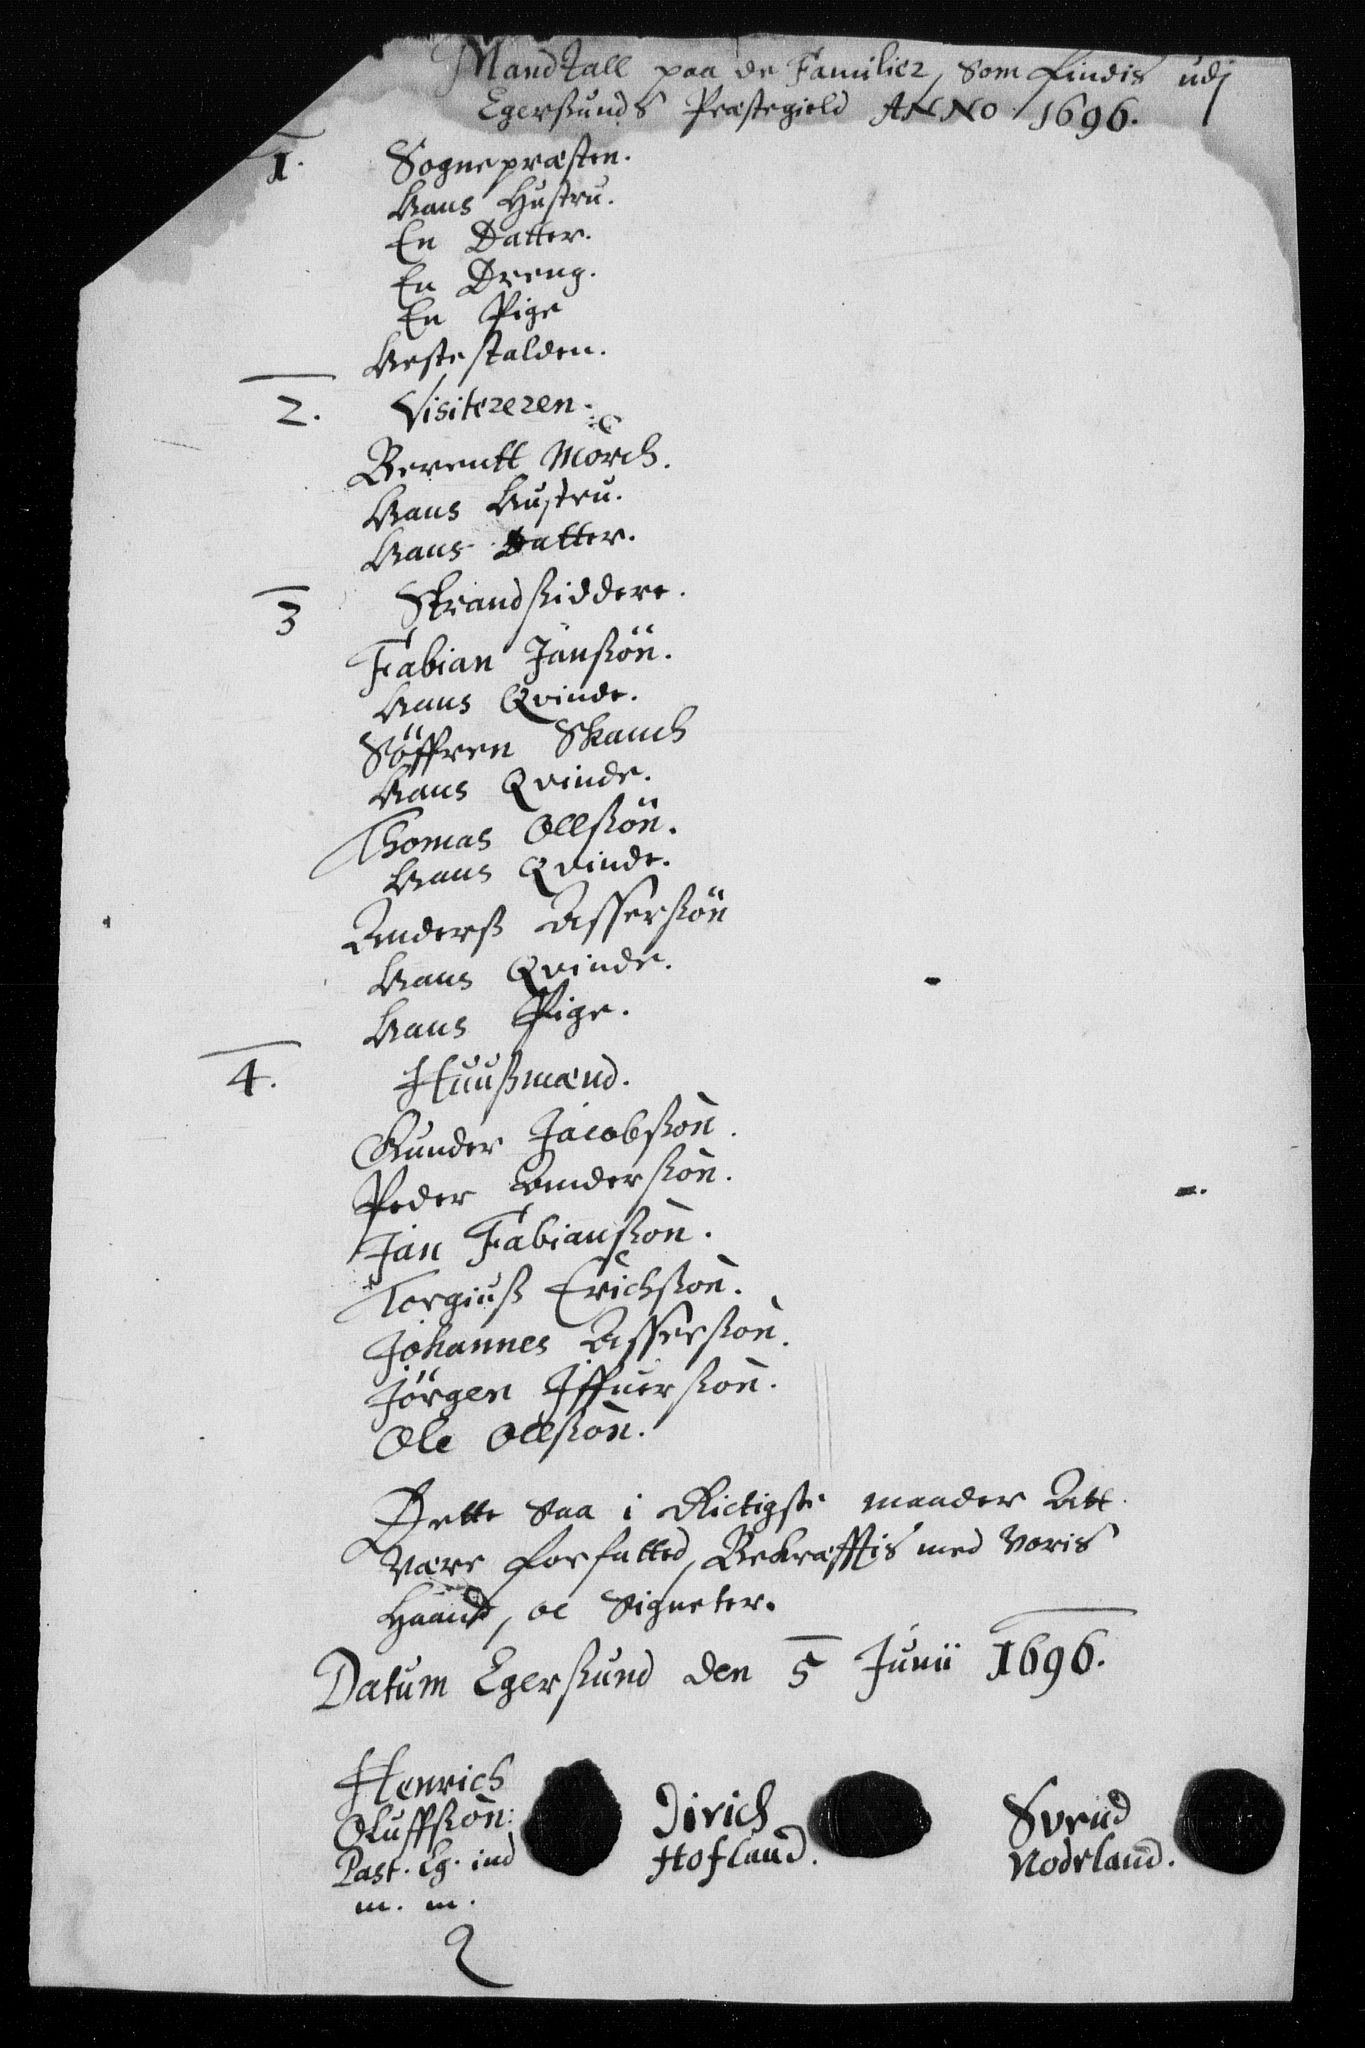 Mandtall paa de Familier, som findis udj
Egersunds Præstegield ANNO 1696.
1. Sognepræsten.
Hans Hustru.
En Datter.
En Dreng.
En Pige
Hestestalden.
2. Visitereren.
Berentt Mörch.
Hans Hustru.
Hans Datter.
3 Strandsiddere.
Fabian Jansøn.
Hans Qvinde.
Söffren Skanch
Hans Qvinde.
Thomas Ollsön.
Hans Qvinde.
Anderß Assersön
Hans Qvinde.
Hans Pige.
4. Huußmænd.
Gunder Jacobsøn.
Peder Andersøn.
Jan Fabiansøn.
Torgiuß Erichsøn.
Johannes Assersøn.
Jörgen Iffuersøn.
Ole Ollsøn.
Dette saa i Rictigste maader Att
være forfatted, Bekræfftis med Voris
Haand, oc Signeter.
Datum Egersund den 5 Junii 1696.
Henrich
Oluffsøn:
Past. Eg. ind
m. m.
Dirich
Hofland.
Svend
Nodland.